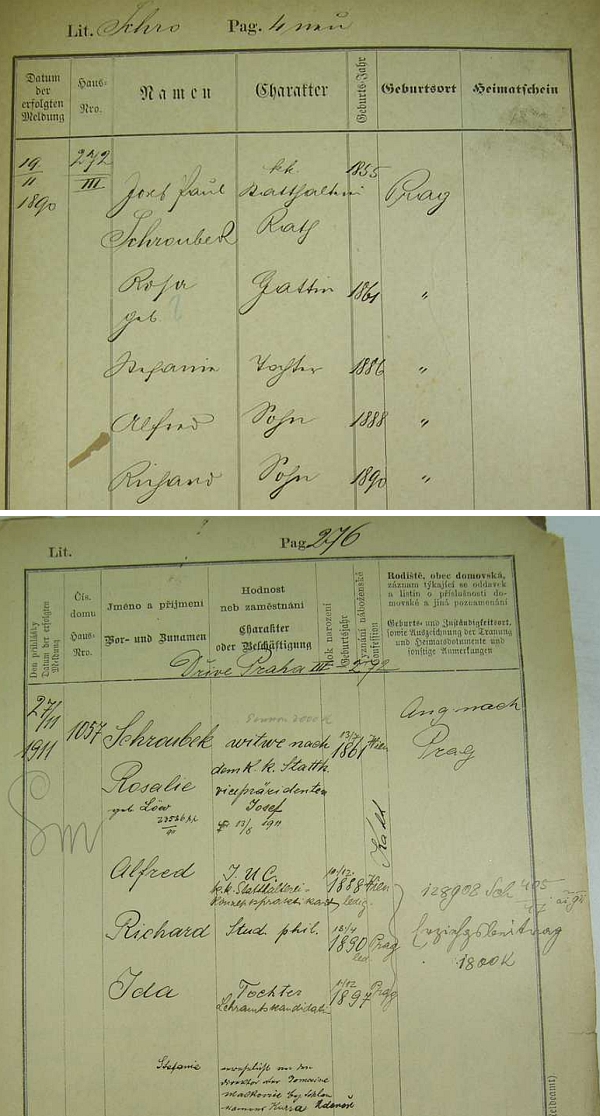 Lit. Schro Pag. 4 neu
Datum der erfolgten Meldung
Haus- Nro.
Namen
Charakter
Geburts-Jahr
Geburtsort
Heimatschein
19/II 1890
272 III
Josef Paul
k.k. Statthalterei
1855
Prag
Schroubek
Rath
Rosa
Gattin
1861
"
geb.
Stefanie
Tochter
1886
"
Alfred
Sohn
1888
"
Richard
Sohn
1890
"
Lit. Pag. 276
Den přihlášky
Datum der erfolgten Meldung
Čís. domu
Haus-Nro.
Jméno a příjmení
Vor- und Zunamen
Hodnost neb zaměstnání
Charakter oder Beschäftigung
Rok narození
Geburtsjahr
Vyznání náboženské
Confession
Rodiště, obec domovská,
záznam týkající se oddavek
a listin o příslušnosti do-
movské a jiná poznamenání
Geburts- und Zuständigkeitsort,
sowie Aufzeichnung der Trauung
und Heimatsdokumente und
sonstige Anmerkungen
Dříve Praha III - 272
27/11 1911
1057
Schroubek
witwe nach
13/7 1861
Wien
Ang. nach
Prag
Rosalie
dem k. k. Statth.
vicepräsidenten
geb. Löw
Josef
13/8 1911
Kath
Alfred
J. U. C.
10/12 1888
Wien
k.k. Statthalterei-
Konzeptspraktikant
ledig
128902
Richard
Stud. phil.
1890
Prag
led.
Erziehgsbeitrag
1800K
Ida
Tochter
1897
Prag
Lehramtskandidatin
Stefanie